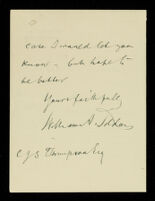 case I would let you
know – but hope to
be better
Yours faithfully
William A.
C.J.S. Thompson Esq